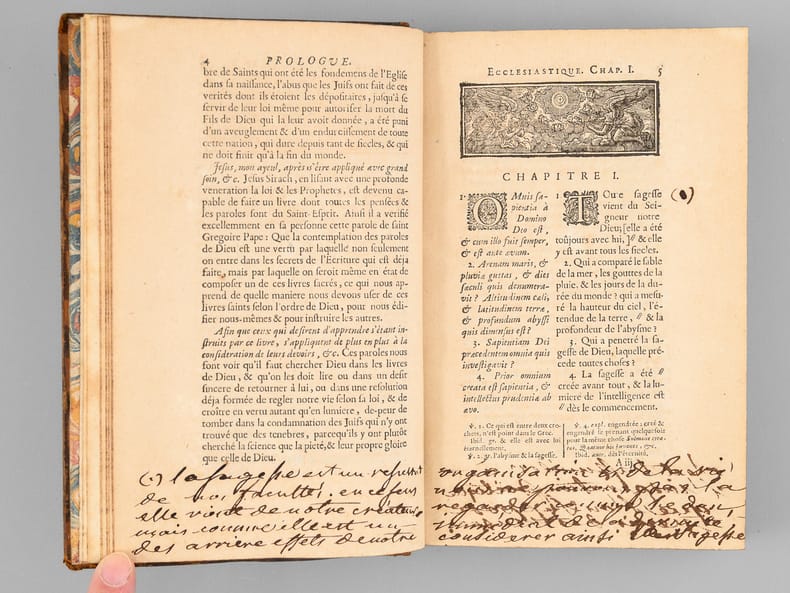 4 PROLOGUE.
bre de Saints qui ont été les fondemens de l'Eglise
dans sa naissance, l'abus que les Juifs ont fait de ces
verités dont ils étoient les dépositaires, jusqu'à se
servir de leur loi même pour autoriser la mort du
Fils de Dieu qui la leur avoit donnée, a été puni
d'un aveuglement & d'un endurcissement de toute
cette nation, qui dure depuis tant de siecles, & qui
ne doit finir qu'à la fin du monde.
Jesus, mon ayeul, après s'être appliqué avec grand
soin, &c. Jesus Sirach, en lisant avec une profonde
veneration la loi & les Prophetes, est devenu ca-
pable de faire un livre dont toutes les pensées &
les paroles sont du Saint-Esprit. Ainsi il a verifié
excellemment en sa personne cette parole de saint
Gregoire Pape: Que la contemplation des paroles
de Dieu est une vertu par laquelle non seulement
on entre dans les secrets de l'Ecriture qui est déja
faite, mais par laquelle on seroit même en état de
composer un de ces livres sacrés, ce qui nous ap-
prend de quelle maniere nous devons user de ces
livres saints selon l'ordre de Dieu, pour nous édi-
fier nous-mêmes & pour instruire les autres.
Afin que ceux qui desirent d'apprendre s'étant in-
struits par ce livre, s'appliquent de plus en plus à la
consideration de leurs devoirs, &c. Ces paroles nous
font voir qu'il faut chercher Dieu dans les livres
de Dieu, & qu'on les doit lire ou dans un desir
sincere de retourner à lui, ou dans une resolution
déja formée de regler notre vie selon sa loi, & de
croître en vertu autant qu'en lumiere, de-peur de
tomber dans la condamnation des Juifs qui n'y ont
trouvé que des tenebres, parcequ'ils y ont plutôt
cherché la science que la pieté, & leur propre gloire
que celle de Dieu.
(.) la sagesse est un resultat
de nos facultés. en ce sens
elle vient de notre créateur
mais comme elle est un
des arriere effets de notre
ECCLESIASTIQUE. CHAP. I. 5
CHAPITRE I.
1. OMnis sa-
pientia à
Domino
Deo est,
& cum illo fuit semper,
& est ante ævum.
2. Arenam maris, &
pluviæ guttas, & dies
sæculi quis denumera-
vit? Altitudinem cæli,
& latitudinem terræ,
& profundum abyssi
quis dimensus est?
3. Sapientiam Dei
præcedentem omnia quis
investigavit?
4. Prior omnium
creata est sapientia, &
intellectus prudentiæ ab
ævo.
1 TOute sagesse (.)
vient du Sei-
gneur notre
Dieu; [elle a été
toûjours avec lui,] & elle
y est avant tous les siecles.
2. Qui a comparé le sable
de la mer, les gouttes de la
pluie, & les jours de la du-
rée du monde? qui a mesu-
té la hauteur du ciel, l'é-
tendue de la terre, & la
profondeur de l'abysme?
3. Qui a penetré la sa-
gesse de Dieu, laquelle pré-
cede toutes choses?
4. La sagesse a été
creée avant tout, & la lu-
miere de l'intelligence est
dès le commencement.
℣. 1. Ce qui est entre deux cro-
chets, n'est point dans le Grec.
Ibid. gr. & elle est avec lui
éternellement.
℣. 2. gr. l'abysme & la sagesse.
℣. 4. expl. engendrée: creé &
engendré se prenant quelquefois
pour la même chose
Ibid. autr. dès l'éternité.
A iij
organisation & de la vie
nous ne pouvons pas la
regarder
considerer ainsi la sagesse